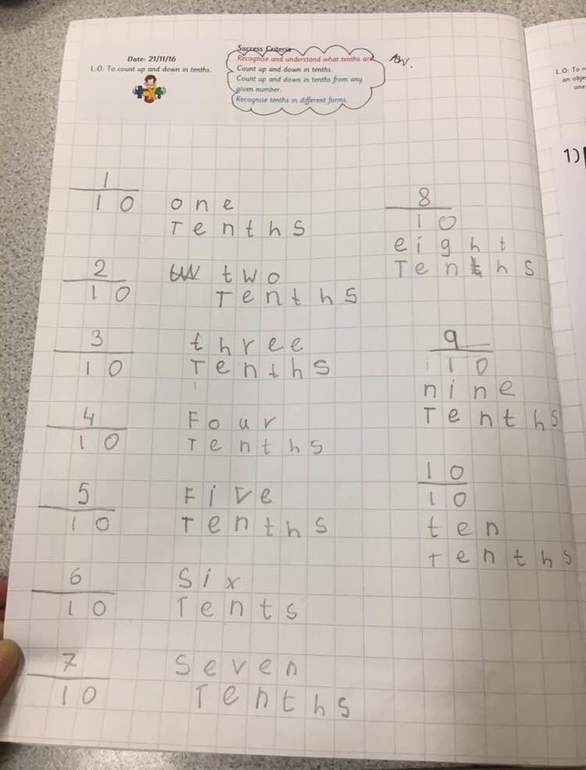 Date: 21/11/16
L.O. To count up and down in tenths.
Success Criteria
Recognise and understand what tenths are
Count up and down in tenths.
Count up and down in tenths from any
given number.
Recognise tenths in different forms.
1
10
one
Tenths
2
10
two
Tenths
3
10
three
Tenths
4
10
Four
Tenths
5
10
Five
Tenths
6
10
Six
Tents
7
10
Seven
Tenths
8
10
eight
Tenths
9
10
nine
Tenths
10
10
ten
Tenths
L.O: To
an obje
one
1)